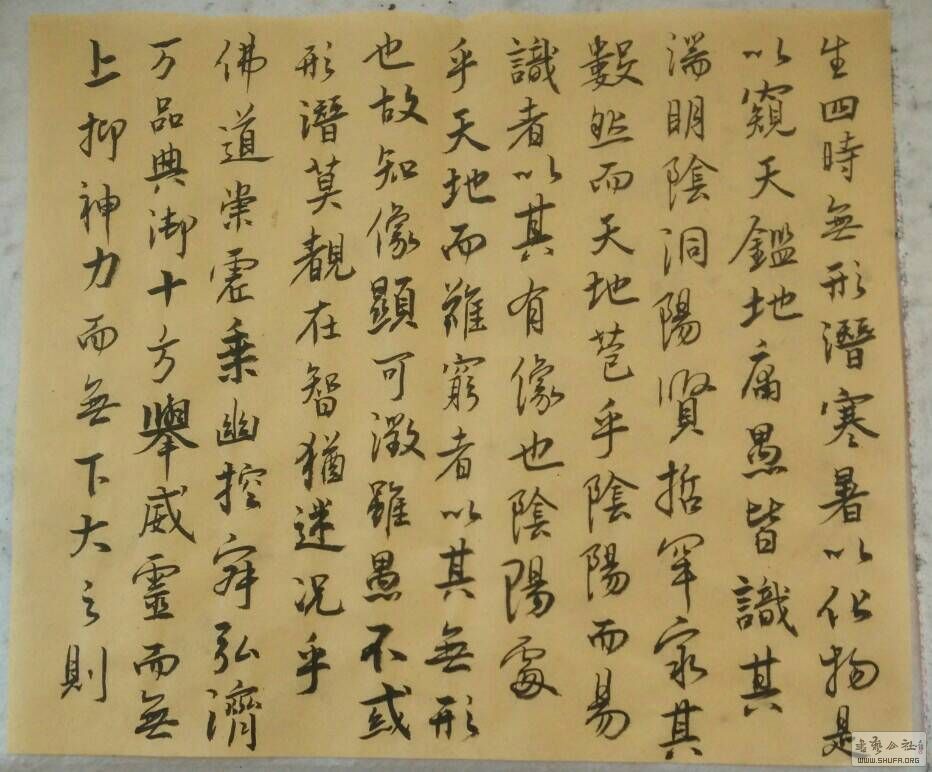 生四時無形潛寒暑以化物是
以窺天鑑地庸愚皆識其
端明陰洞陽賢哲罕窮其
數然而天地苞乎陰陽而易
識者以其有像也陰陽處
乎天地而難窮者以其無形
也故知像顯可徵雖愚不惑
形潛莫覩在智猶迷況乎
佛道崇虛乘幽控寂弘濟
万品典御十方舉威靈而無
上抑神力而無下大之則
书艺公社
WWW.SHUFA.ORG